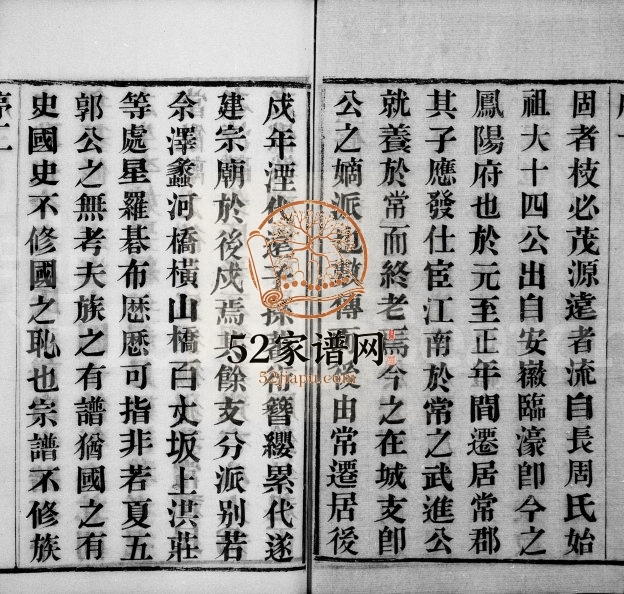 固者枝必茂源遠者流自長周氏始
祖大十四公出自安徽臨濠卽今之
鳳陽府也於元至正年間遷居常郡
其子應發仕宦江南於常之武進公
就養於常而終老焉今之在城支卽
公之嫡派也數傳後由常遷居後
戍年湮代遠子孫簪纓累代遂
建宗廟於後戍焉其餘支分派别若
佘澤蠡河橋橫山橋百丈坂上洪莊
等處星羅碁布厯厯可指非若夏五
郭公之無考夫族之有譜猶國之有
史國史不修國之恥也宗譜不修族
序二
52家谱网
52jiapu.com